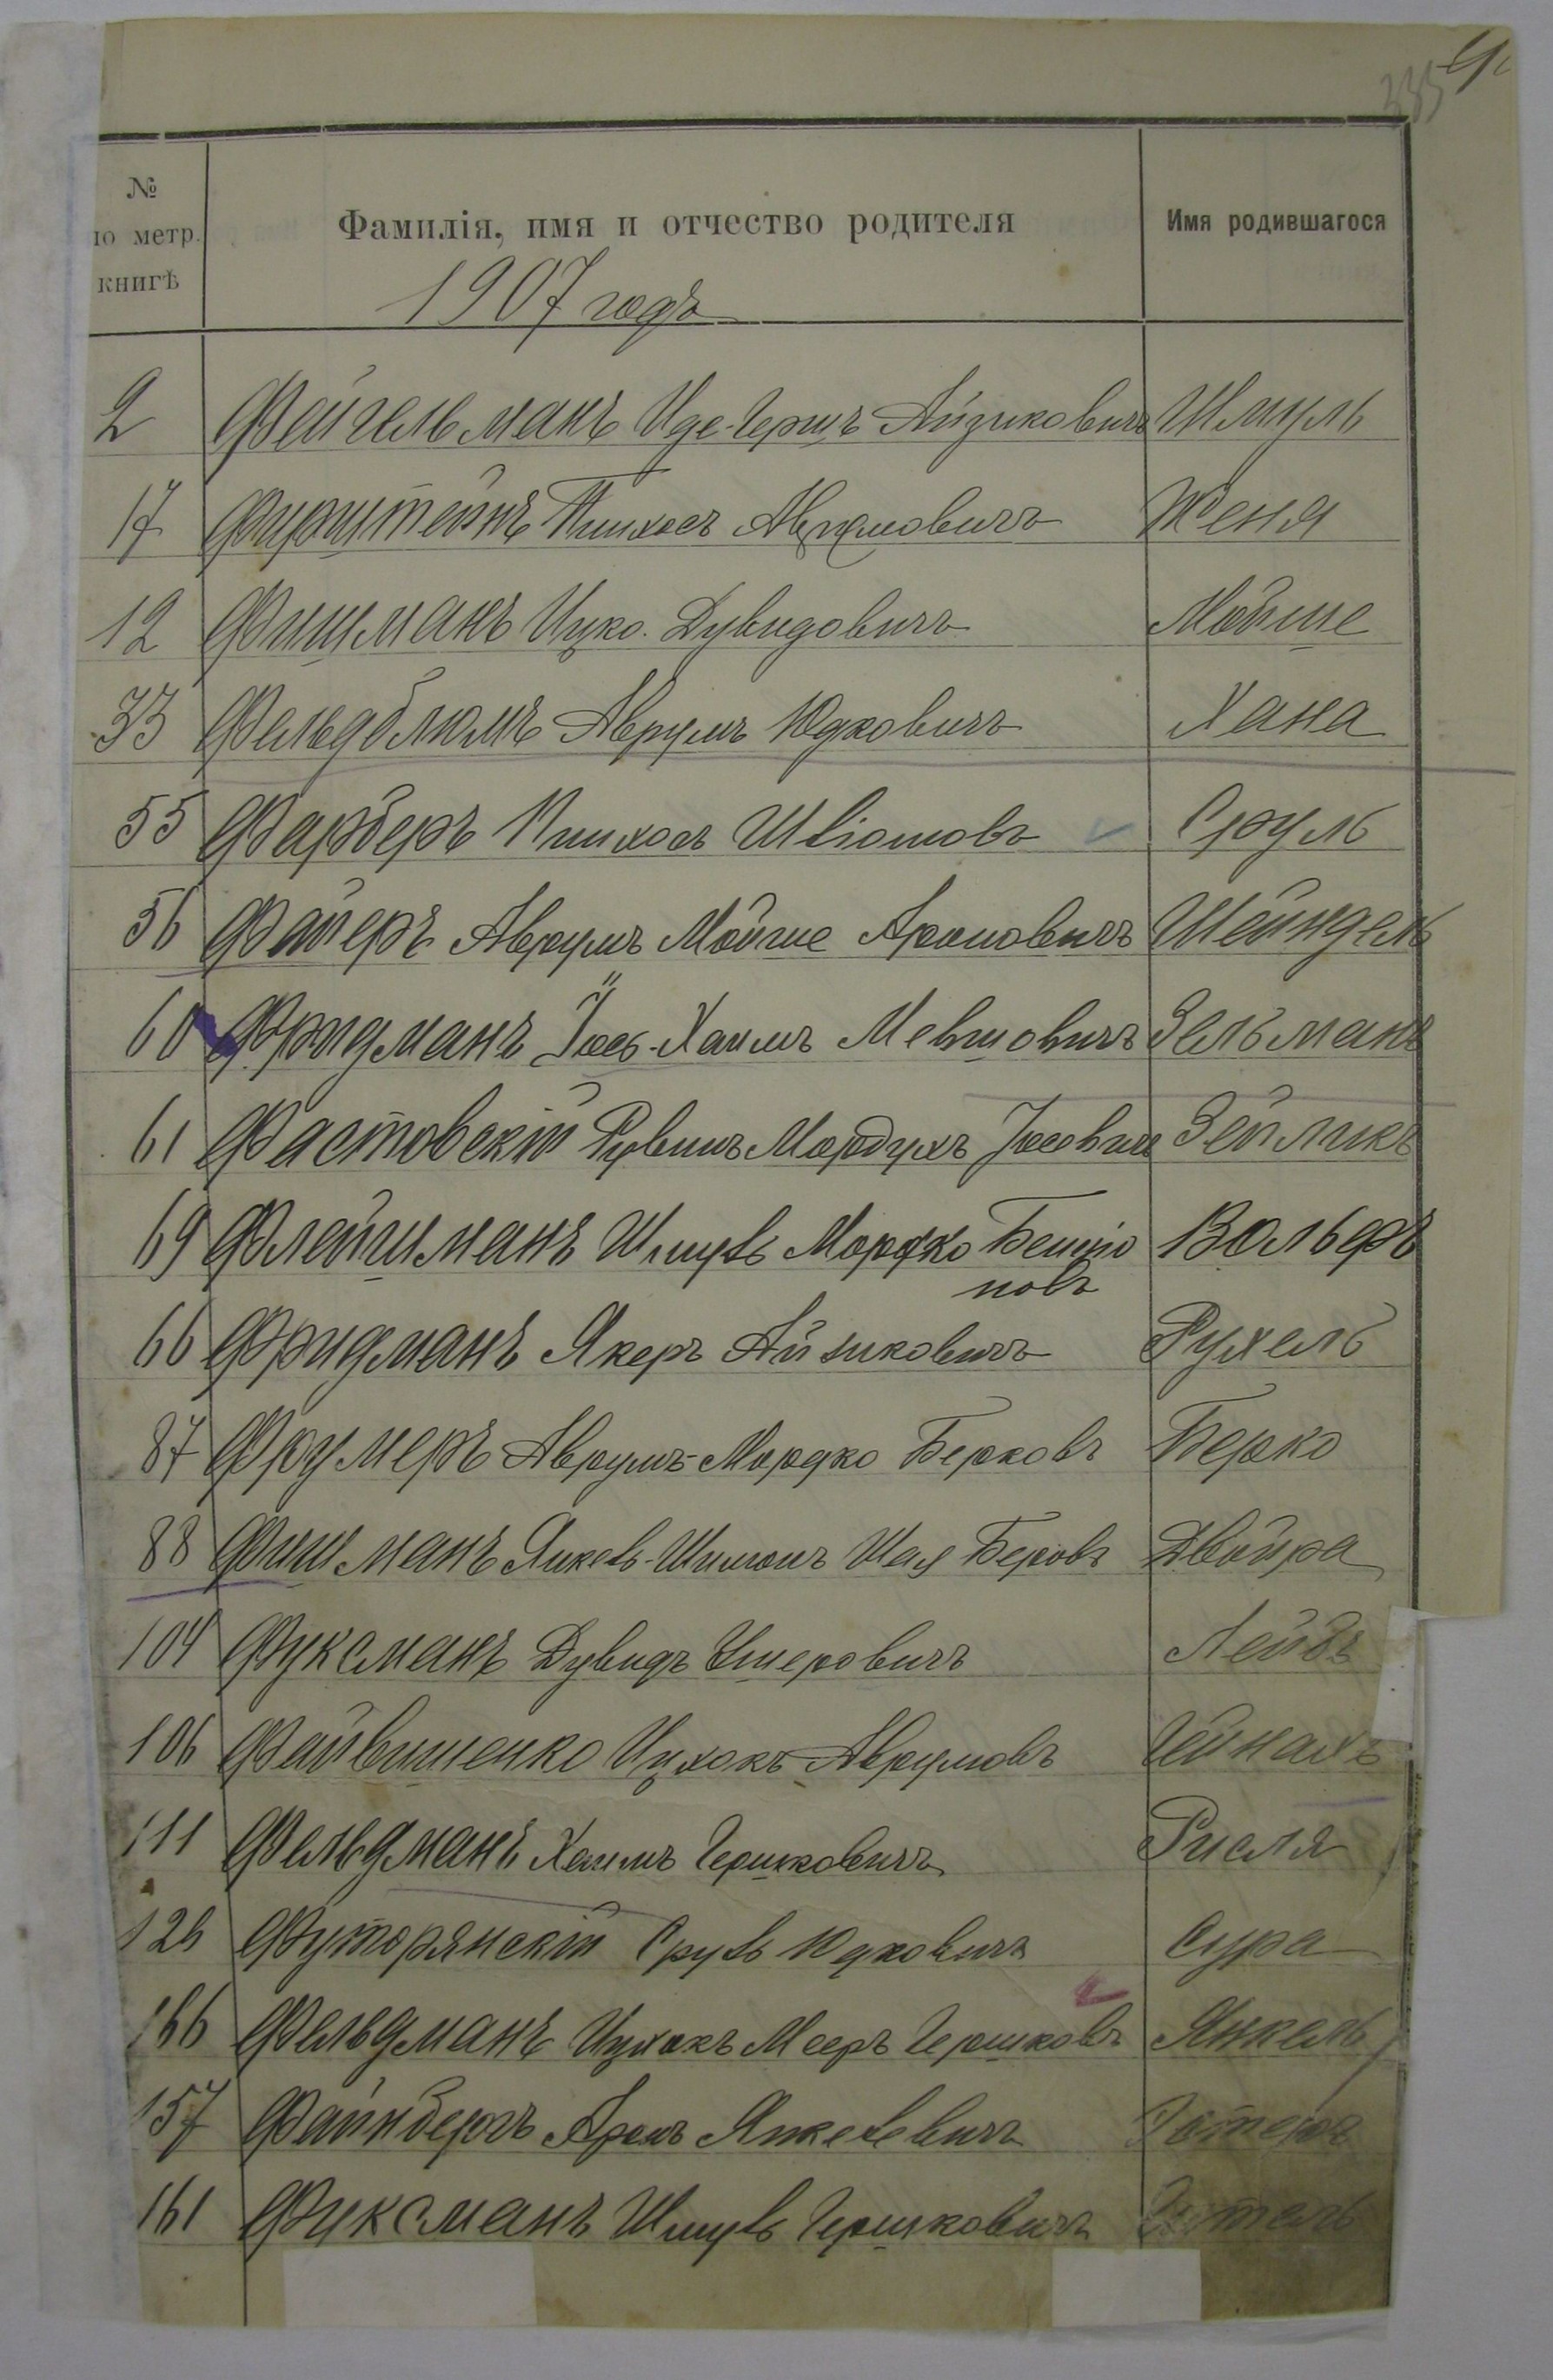 335
№ по метр. книгѣ Фамилія, имя и отчество родителя Имя родившагося
1907 годъ
2 Фейгельманъ Иде-Гершъ Айзиковичъ Шмуль
17 Фурштейнъ Пинхосъ Аврумовичъ Женя
12 Фишманъ Ицко Дувидовичъ Мойше
33 Фельдблюмъ Аврумъ Юдковичъ Хана
55 Фарберъ Пинхосъ Шліомовъ Сруль
56 Фаеръ Аврумъ Мойше Ароновичъ Шейндель
60 Фридманъ Іось-Хаимъ Мевшовичъ Зельманъ
61 Фастовскій Рувинъ Мордухъ Іосевичъ Зейликъ
69 Флейшманъ Шмуль Мордко Бенціо
новъ Вольфъ
66 Фридманъ Айзиковичъ Рухель
87 Фрумеръ Аврумъ-Мордко Берковъ Берко
88 Фишманъ Янкель-Шимонъ Шая Беровъ Двойра
104 Фуксманъ Дувидъ Ушеровичъ Лейбъ
106 Файвишенко Ицхокъ Аврумовъ Гейнахъ
111 Фельдманъ Хаимъ Гершковичъ Рисля
126 Футорянскій Сруль Юдковичъ Сура
166 Фельдманъ Ицхокъ Мееръ Гершковъ Янкель
157 Файнбергъ Аронъ Янкелевичъ
161 Фуксманъ Шмуль Гершковичъ